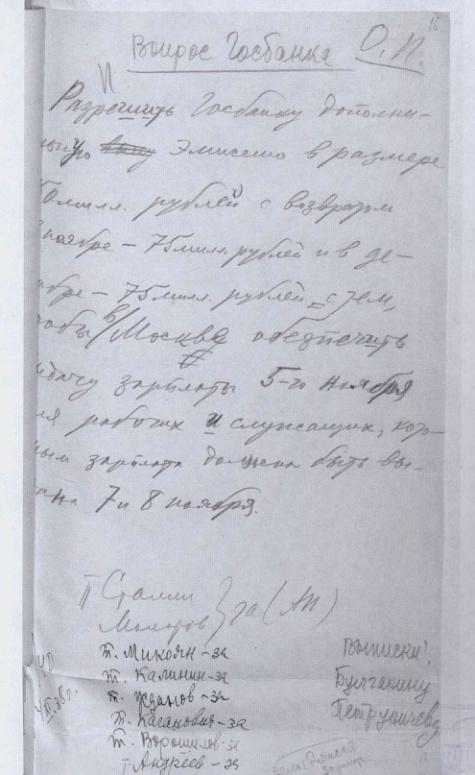 16
Вопрос Госбанка О.П.
Разрешить Госбанку дополни-
ную эмиссию в размере
милл. рублей с возвратом
ноябре – 75 милл. рублей и в де-
абре – 75 милл. рублей с тем,
обы в Москве обеспечить
дачу зарплаты 5-го ноября
ля рабочих и служащих, кото-
ым зарплата должна быть вы-
ана 7 и 8 ноября.
т Сталин
Молотов } за (АП)
т. Микоян – за
т. Калинин – за
т. Жданов – за
т. Каганович – за
т. Ворошилов – за
т Андреев – за
Выписки:
Булганину
Петруничеву